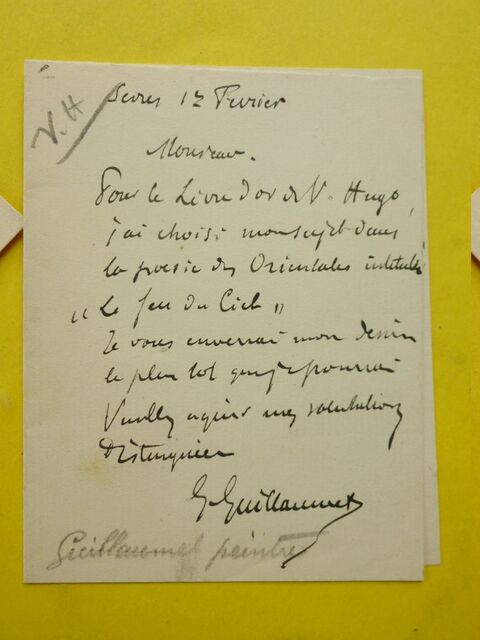 V. H
Sevres 12 Fevrier
Monsieur.
Pour le Livre d'or de V. Hugo,
j'ai choisi mon sujet dans
la poesie des Orientales intitulée
" Le feu du Ciel "
Je vous enverrai mon dessin
le plus tot que je pourrai
Veuillez agréer mes salutations
Distinguées
G. Guillaumet
Guillaumet peintre